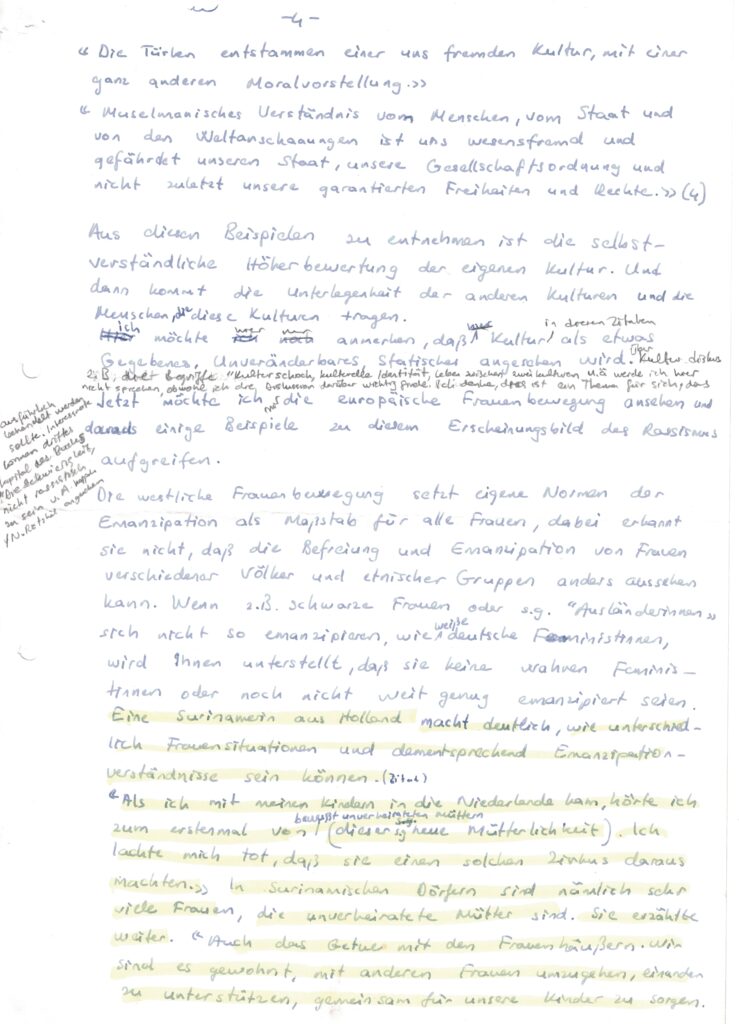 -4-
"Die Türken entstammen einer uns fremden Kultur, mit einer
ganz anderen Moralvorstellung.»
"Muselmanisches Verständnis vom Menschen, vom Staat und
von den Weltanschauungen ist uns wesensfremd und
gefährdet unseren Staat, unsere Gesellschaftsordnung und
nicht zuletzt unsere garantierten Freiheiten und Rechte.» (4)
Aus diesen Beispielen zu entnehmen ist die selbst-
verständliche Höherbewertung der eigenen Kultur. Und
dann kommt die Unterlegenheit der anderen Kulturen und die
Menschen, die diese Kulturen tragen.
ich in deren Zitaten
möchte anmerken, daß Kultur als etwas
Gegebenes, Unveränderbares, Statisches angesehen wird. über Kultur diskus
z.B. Begriffe "Kulturschock, kulturelle Identität, Leben zwischen zwei Kulturen u.ä werde ich hier
nicht sprechen, obwohl ich die Diskussion darüber wichtig finde. Ich denke, dies ist ein Thema für sich, das
ausführlich
behandelt werden
sollte. Interessierte
können drittes
Kapitel des Buches
"Die Schwierigkeit,
nicht rassistisch
zu sein" v. A. Kalpaka
/N. Rätzel angesehen
Jetzt möchte ich mir die europäische Frauenbewegung ansehen und
daraus einige Beispiele zu diesem Erscheinungsbild des Rassismus
aufgreifen.
Die westliche Frauenbewegung setzt eigene Normen der
Emanzipation als Maßstab für alle Frauen, dabei erkannt
sie nicht, daß die Befreiung und Emanzipation von Frauen
verschiedener Völker und etnischer Gruppen anders aussehen
kann. Wenn z.B. schwarze Frauen oder s.g. "Ausländerinnen»
sich nicht so emanzipieren, wie weiße deutsche Feministinnen,
wird Ihnen unterstellt, daß sie keine wahren Feminis-
tinnen oder noch nicht weit genug emanzipiert seien.
Eine Surinamerin aus Holland macht deutlich, wie unterschied-
lich Frauensituationen und dementsprechend Emanzipation-
verständnisse sein können. (Zitat)
"Als ich mit meinen Kindern in die Niederlande kam, hörte ich
bewußt unverheirateten Müttern
zum erstenmal von (dieser sg neue Mütterlichkeit). Ich
lachte mich tot, daß sie einen solchen Zirkus daraus
machten.» In Surinamischen Dörfern sind nämlich sehr
viele Frauen, die unverheiratete Mütter sind. Sie erzählte
weiter. "Auch das Getue mit den Frauenhäußern. Wir
sind es gewohnt, mit anderen Frauen umzugehen, einander
zu unterstützen, gemeinsam für unsere Kinder zu sorgen.